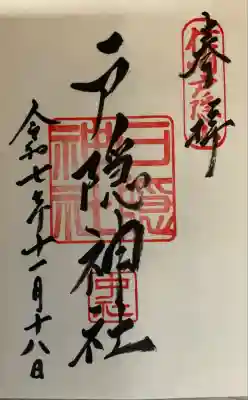 奉拝
信州戸隠
戸隠神社
戸隠神社
中社
令和七年十一月十八日